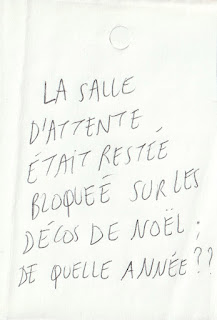 LA SALLE
D'ATTENTE
ÉTAIT RESTÉE
BLOQUEÉ SUR LES
DÉCOS DE NOËL ;
DE QUELLE ANNÉE ??